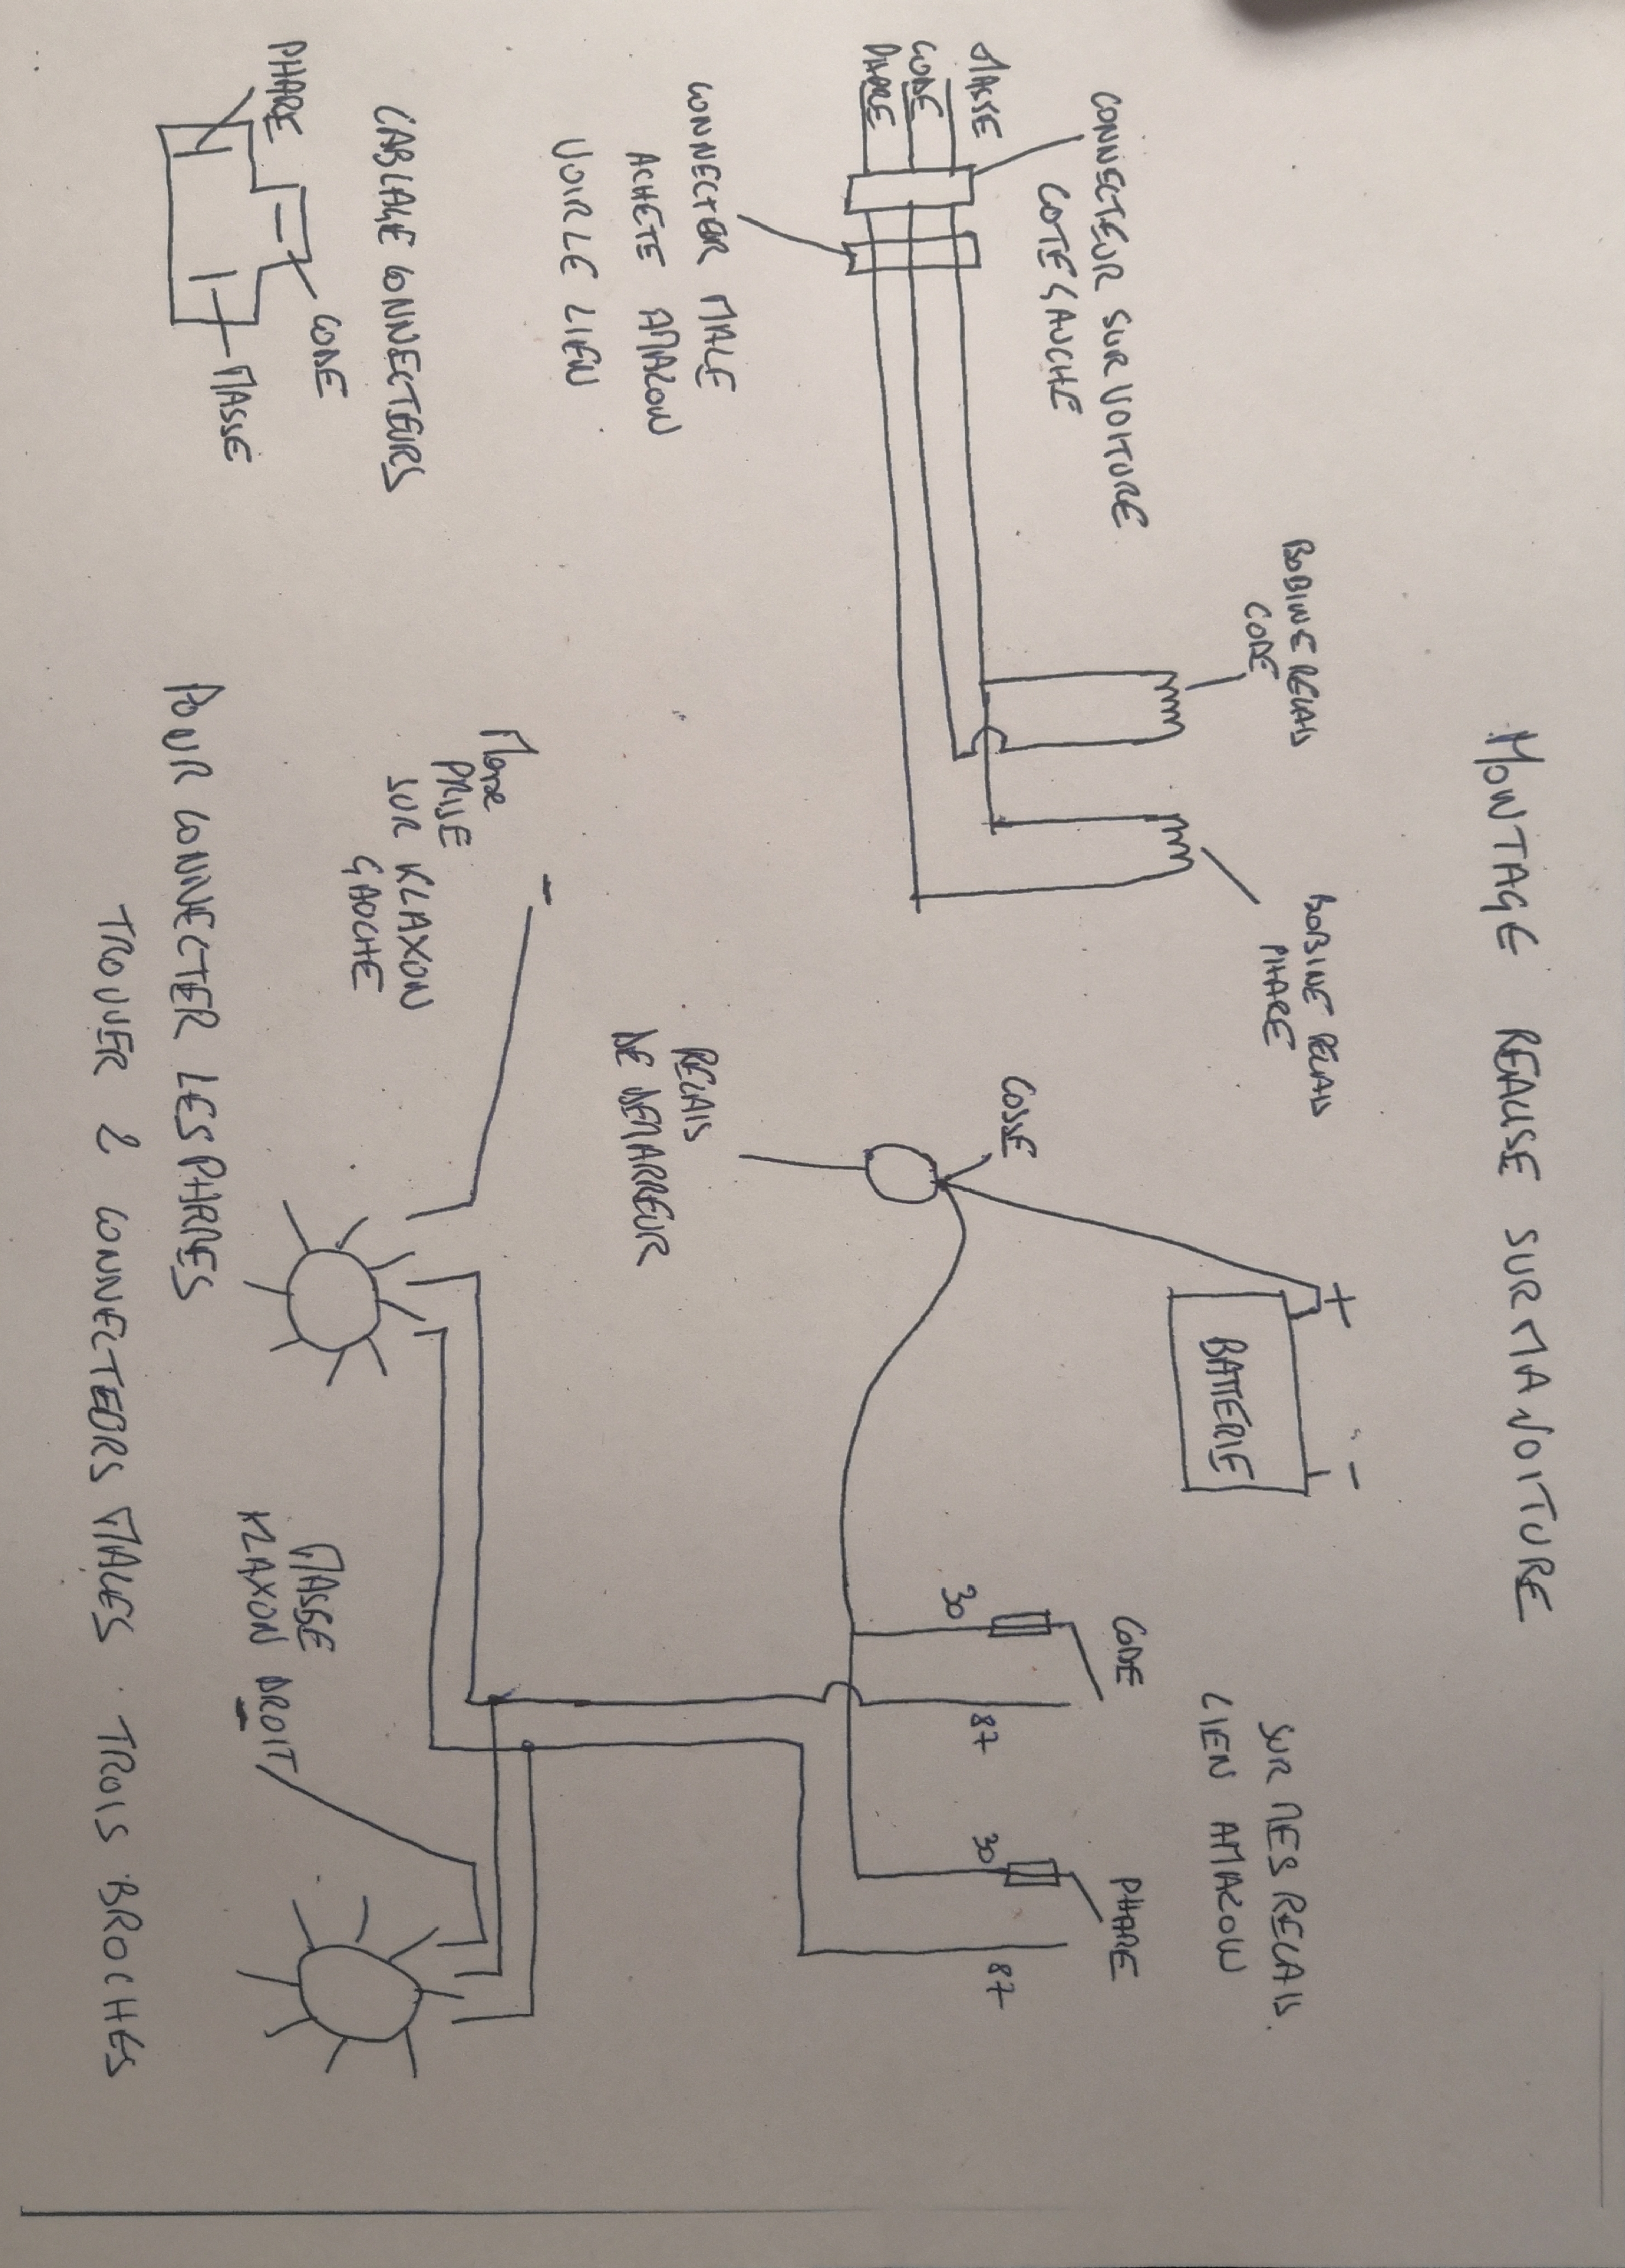 MONTAGE REALISE SUR MA VOITURE
CONNECTEUR SUR VOITURE
COTE GAUCHE
MASSE
CODE
PHARE
CONNECTER MALE
ACHETE AMAZON
VOIR LE LIEN
CABLAGE CONNECTEURS
PHARE
CODE
MASSE
BOBINE RELAIS
CODE
BOBINE RELAIS
PHARE
COSSE
RELAIS
DE DEMARREUR
+
-
BATTERIE
SUR MES RELAIS.
LIEN AMAZON
CODE
30
87
PHARE
30
87
Masse
PRISE
SUR KLAXON
GAUCHE
-
MASSE
KLAXON DROIT
-
POUR CONNECTER LES PHARES
TROUVER 2 CONNECTEURS MALES. TROIS BROCHES